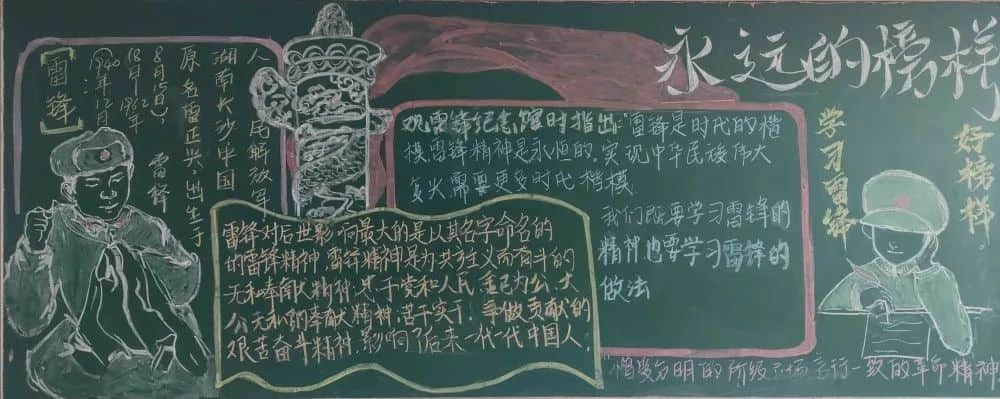 永远的榜样
学习雷锋
好榜样
【雷锋】
1940年12月
18日—1962年
8月15日),
雷锋
原名雷正兴,出生于
湖南长沙 中国
人民解放军
观雷锋纪念馆时指出:"雷锋是时代的楷
模,雷锋精神是永恒的,实现中华民族伟大
复兴需要更多时代楷模
我们既要学习雷锋的
精神也要学习雷锋的
做法
雷锋对后世影响最大的是以其名字命名的
的雷锋精神,雷锋精神是为共产主义而奋斗的
无私奉献精神,忠于党和人民,舍己为公,大
公无私的奉献精神,苦干实干,争做贡献的
艰苦奋斗精神,影响了后来一代一代中国人,
憎爱分明的阶级立场言行一致的革命精神